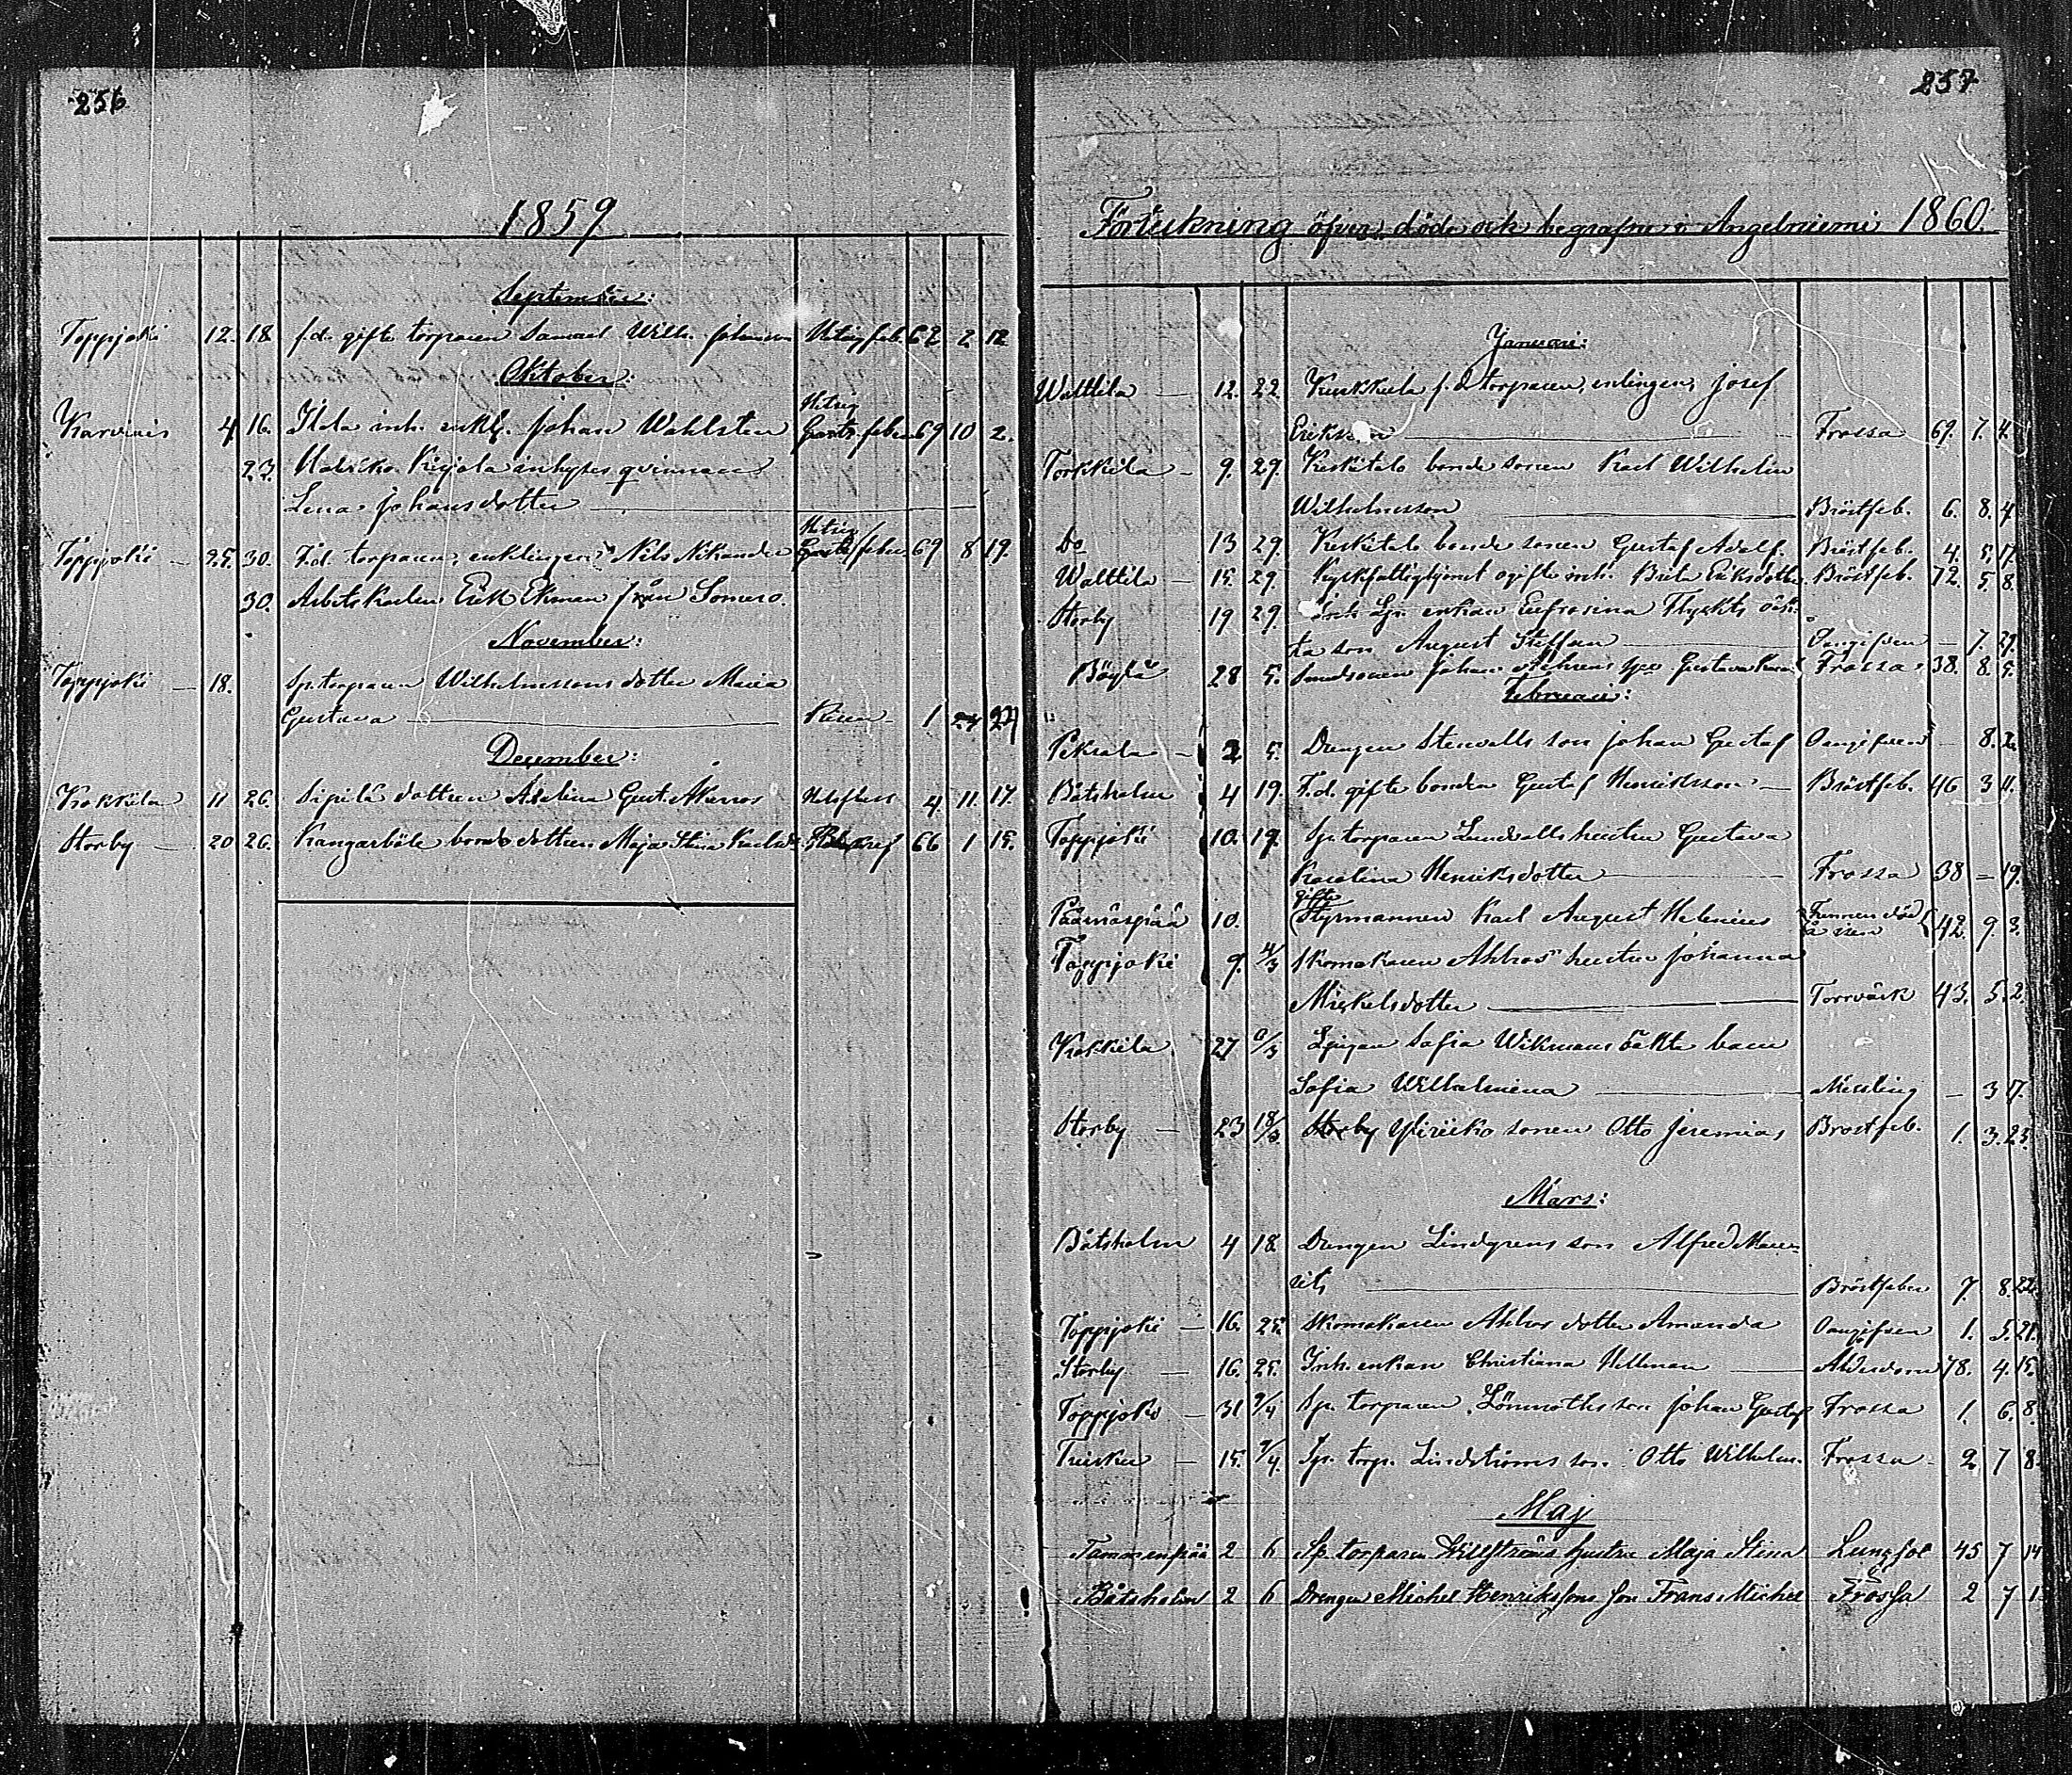 256
1859
September:
Toppjoki 12. 18. f.d. gifte torparen Samuel Wilh. Johansson Hitsig feb. 62 2 12
Oktober:
Hitsig
Karvais 4 16. Isola inh. enkl. Johan Wahlsten feber 69 10 2.
23. Kirjola inhyses qvinnan
Lena Johansdotter
Hitsig
Toppjoki 25. 30. F.d. torparen, enklingen Nils Nikander feber 69 8 19.
30. Arbetskarlen Erik Ekman från Somero.
November:
Toppjoki 18. Sp. torparen Wilhelmssons dotter Maria
Gustava 1 24
December:
Kokkila 11 26. Sipilä dottren Adelina Gust. 4 11. 17.
Storby 20 26. Kangarböle bonde dottren Maja Stina 66 1 15.
257
Förteckning öfver döde och begrafne i Angelniemi 1860.
Januari:
Walttila 12. 22. f.d. torparen, enlingen, Josef
Eriksson Frossa 69. 7. 4.
Torkkila 9. 29. Keskitalo bonde sonen Karl Wilhelm
Wilhelmsson Bröstfeb. 6. 8. 4
Do 13 29. Keskitalo bonde sonen Gustaf Adolf. Bröstfeb. 4. 5. 17.
Walttila 15. 29. Kyrkfattighjonet ogifta inh. Brita Eriksdotter Bröstfeb. 72. 5. 8.
Storby 19 29. Inh. enkan Eufrosina Flyckts oäk-
ta son August Steffan Oangifven 7. 29.
Böylä 28 5. Johan Gustava Frossa 38. 8. 5.
Februari:
Peksala 2 5. Drengen Stenvalls son Johan Gustaf Oangifven 8.
Båtsholm 4 19. F.d. gifte bonden Gustaf Henriksson Bröstfeb. 46 3 11.
Toppjoki 10. 19. Sp. torparen Lundvalls hustru Gustava
Karolina Henriksdotter Frossa 38 – 19.
gifte
Päärnäspää 10. Styrmannen Karl August Helenius Funnen död 42. 9 3.
Toppjoki 9. 4/3 Skomakaren Ahlros hustru Johanna
Mickelsdotter Torrvärk 43. 5. 2.
Kokkila 27 /3 Pigan Sofia Wikmans oäkta barn
Sofia Wilhelmina Messling – 3 17.
Storby 23 18/3 Storby Yliriiko sonen Otto Jeremias Bröstfeb. 1. 3. 25
Mars:
Båtsholm 4 18. Drengen Lindgrens son Alfred Mau-
rits Bröstfeber 7 8 22.
Toppjoki 16. 25. Skomakaren Ahlros dotter Amanda Oangifven 1. 5. 21.
Storby 16. 25. Inh. enkan Christiana Hellman Ålderdom 78. 4. 15.
Toppjoki 31 9/4 Sp. torparen Lönnroths son Johan Gustaf Frossa 1. 6. 8.
Trusku 15. 9/4. Sp. torp. Lindströms son Otto Wilhelm. Frossa 2 7 8.
Maj
Tammenpää 2 6 Sp. torparen Willströms hustru Maja Stina Lungsot 45 7 14
Båtsholm 2 6 Drengen Michel Henrikssons son Frans Michel Frossa 2 7 1